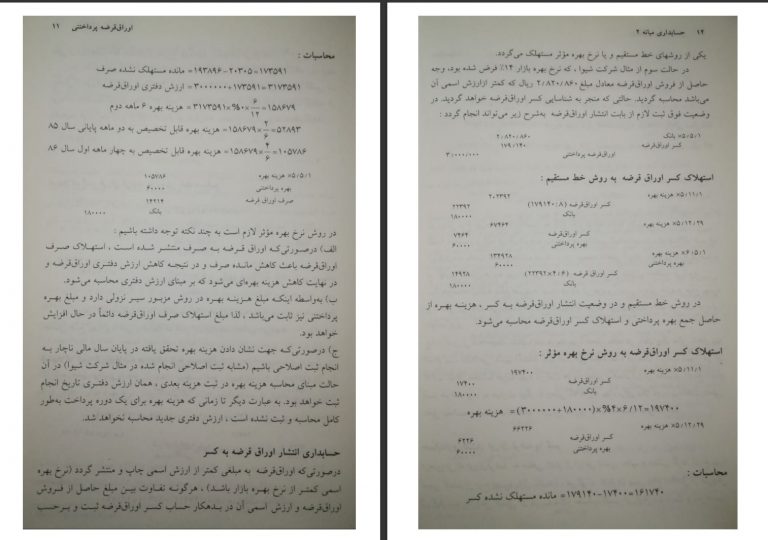 اوراق قرضه پرداختنی ۱۱
محاسبات :
مانده مستهلک نشده صرف = ۱۷۳۵۹۱=۲۰۳۰۵−۱۹۳۸۹۶
ارزش دفتری اوراق‌قرضه = ۳۱۷۳۵۹۱=۱۷۳۵۹۱+۳۰۰۰۰۰۰
هزینه بهره ۶ ماهه دوم = ۱۵۸۶۷۹=۶/۱۲×۱۰%×۳۱۷۳۵۹۱
هزینه بهره قابل تخصیص به دو ماهه پایانی سال ۸۵ = ۵۲۸۹۳=۲/۶×۱۵۸۶۷۹
هزینه بهره قابل تخصیص به چهار ماهه اول سال ۸۶ = ۱۰۵۷۸۶=۴/۶×۱۵۸۶۷۹
×۵/۵/۱ هزینه بهره ۱۰۵۷۸۶
بهره پرداختنی ۶۰۰۰۰
صرف اوراق قرضه ۱۴۲۱۴
بانک ۱۸۰۰۰۰
در روش نرخ بهره مؤثر لازم است به چند نکته توجه داشته باشیم :
الف) درصورتی‌که اوراق قرضه به صرف منتشر شده است ، استهلاک صرف
اوراق‌قرضه باعث کاهش مانده صرف و در نتیجه کاهش ارزش دفتری اوراق‌قرضه و
در نهایت کاهش هزینه بهره‌ای می‌شود که بر مبنای ارزش دفتری محاسبه می‌شود.
ب) به‌واسطه اینکه مبلغ هزینه بهره در روش مزبور سیر نزولی دارد و مبلغ بهره
پرداختنی نیز ثابت می‌باشد ، لذا مبلغ استهلاک صرف اوراق‌قرضه دائماً در حال افزایش
خواهد بود.
ج) درصورتی‌که جهت نشان دادن هزینه بهره تحقق یافته در پایان سال مالی ناچار به
انجام ثبت اصلاحی باشیم (مشابه ثبت اصلاحی انجام شده در مثال شرکت شیوا) در آن
حالت مبنای محاسبه هزینه بهره در ثبت هزینه بعدی ، همان ارزش دفتری تاریخ انجام
ثبت خواهد بود. به عبارت دیگر تا زمانی که هزینه بهره برای یک دوره پرداخت به‌طور
کامل محاسبه و ثبت نشده است ، ارزش دفتری جدید محاسبه نخواهد شد.
حسابداری انتشار اوراق قرضه به کسر
درصورتی‌که اوراق‌قرضه به مبلغی کمتر از ارزش اسمی چاپ و منتشر گردد (نرخ بهره
اسمی کمتر از نرخ بهره بازار باشد) ، هرگونه تفاوت بین مبلغ حاصل از فروش
اوراق‌قرضه و ارزش اسمی آن در بدهکار حساب کسر اوراق‌قرضه ثبت و برحسب
۱۲ حسابداری میانه ۲
یکی از روشهای خط مستقیم و یا نرخ بهره مؤثر مستهلک می‌گردد.
در حالت سوم از مثال شرکت شیوا ، که نرخ بهره بازار ۱۴٪ فرض شده بود، وجه
حاصل از فروش اوراق‌قرضه معادل مبلغ ۲/۸۲۰/۸۶۰ ریال که کمتر ازارزش اسمی آن
می‌باشد محاسبه گردید. حالتی که منجر به شناسایی کسر اوراق‌قرضه خواهد گردید. در
وضعیت فوق ثبت لازم از بابت انتشار اوراق‌قرضه به‌شرح زیر می‌تواند انجام گردد :
×۵/۵/۱ بانک ۲/۸۲۰/۸۶۰
کسر اوراق‌قرضه ۱۷۹/۱۴۰
اوراق‌قرضه پرداختنی ۳/۰۰۰/۰۰۰
استهلاک کسر اوراق قرضه به روش خط مستقیم :
×۵/۱۱/۱ هزینه بهره ۲۰۲۳۹۲
کسر اوراق‌قرضه (۸ : ۱۷۹۱۴۰) ۲۲۳۹۲
بانک ۱۸۰۰۰۰
×۵/۱۲/۲۹ هزینه بهره ۶۷۴۶۴
کسر اوراق‌قرضه ۷۴۶۴
بهره پرداختنی ۶۰۰۰۰
×۶/۵/۱ هزینه بهره ۱۳۴۹۲۸
بهره پرداختنی ۶۰۰۰۰
کسر اوراق قرضه (۴/۶×۲۲۳۹۲) ۱۴۹۲۸
بانک ۱۸۰۰۰۰
در روش خط مستقیم و در وضعیت انتشار اوراق‌قرضه به کسر ، هزینه بهره از
حاصل جمع بهره پرداختی و استهلاک کسر اوراق‌قرضه محاسبه می‌شود.
استهلاک کسر اوراق‌قرضه به روش نرخ بهره مؤثر :
×۵/۱۱/۱ هزینه بهره ۱۹۷۴۰۰
کسر اوراق‌قرضه ۱۷۴۰۰
بانک ۱۸۰۰۰۰
هزینه بهره = (۳۰۰۰۰۰۰+۱۸۰۰۰۰)×%۴×۶/۱۲=۱۹۷۴۰۰
×۵/۱۲/۲۹ هزینه بهره ۶۶۲۲۶
کسر اوراق‌قرضه ۶۲۲۶
بهره پرداختنی ۶۰۰۰۰
محاسبات :
مانده مستهلک نشده کسر = ۱۶۱۷۴۰=۱۷۴۰۰−۱۷۹۱۴۰